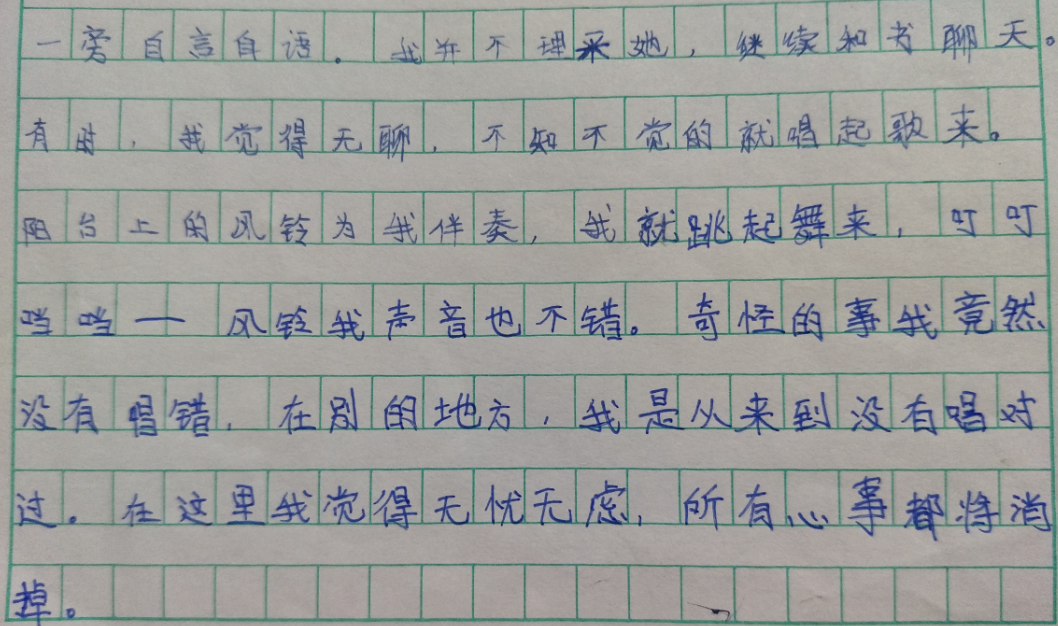 一旁自言自语。我并不理采她，继续和书聊天。
有时，我觉得无聊，不知不觉的就唱起歌来。
阳台上的风铃为我伴奏，我就跳起舞来，叮叮
当当一风铃我声音也不错。奇怪的事我竟然
没有唱错，在别的地方，我是从来到没有唱对
过。在这里我觉得无忧无虑，所有心事都将消
掉。